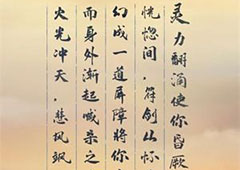 灵力翻涌使你昏厥
恍惚间，符剑山怀
幻成一道屏障将你
而身外渐起喊杀之
火光冲天，悲风飒